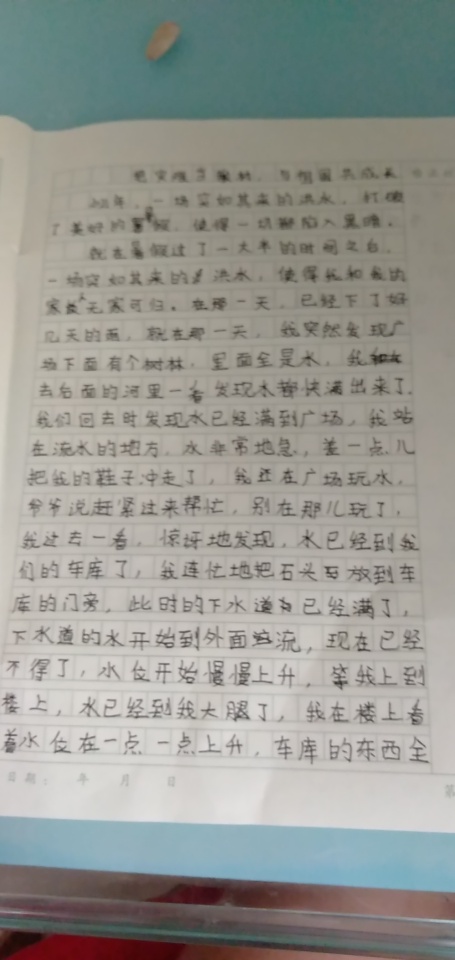 把灾难当象材，与祖国共成长
年，一场突如其来的洪水，打破
了美好的暑假，使得一切都陷入黑暗。
就在暑假过了一大半的时间之后，
一场突如其来的洪水，使得我和我的
家人无家可归。在那一天，已经下了好
几天的雨，就在那一天，我突然发现广
场下面有个树林，里面全是水，我
去后面的河里一看发现水都快满出来了。
我们回去时发现水已经满到广场，我站
在流水的地方，水非常地急，差一点儿
把我的鞋子冲走了，我还在广场玩水，
爷爷说赶紧过来帮忙，别在那儿玩了，
我过去一看，惊讶地发现，水已经到我
们的车库了，我连忙地把石头放到车
库的门旁，此时的下水道已经满了，
下水道的水开始到外面流，现在已经
不得了，水位开始慢慢上升，等我上到
楼上，水已经到我大腿了，我在楼上看
着水位在一点一点上升，车库的东西全
日期： 年 月 日
第